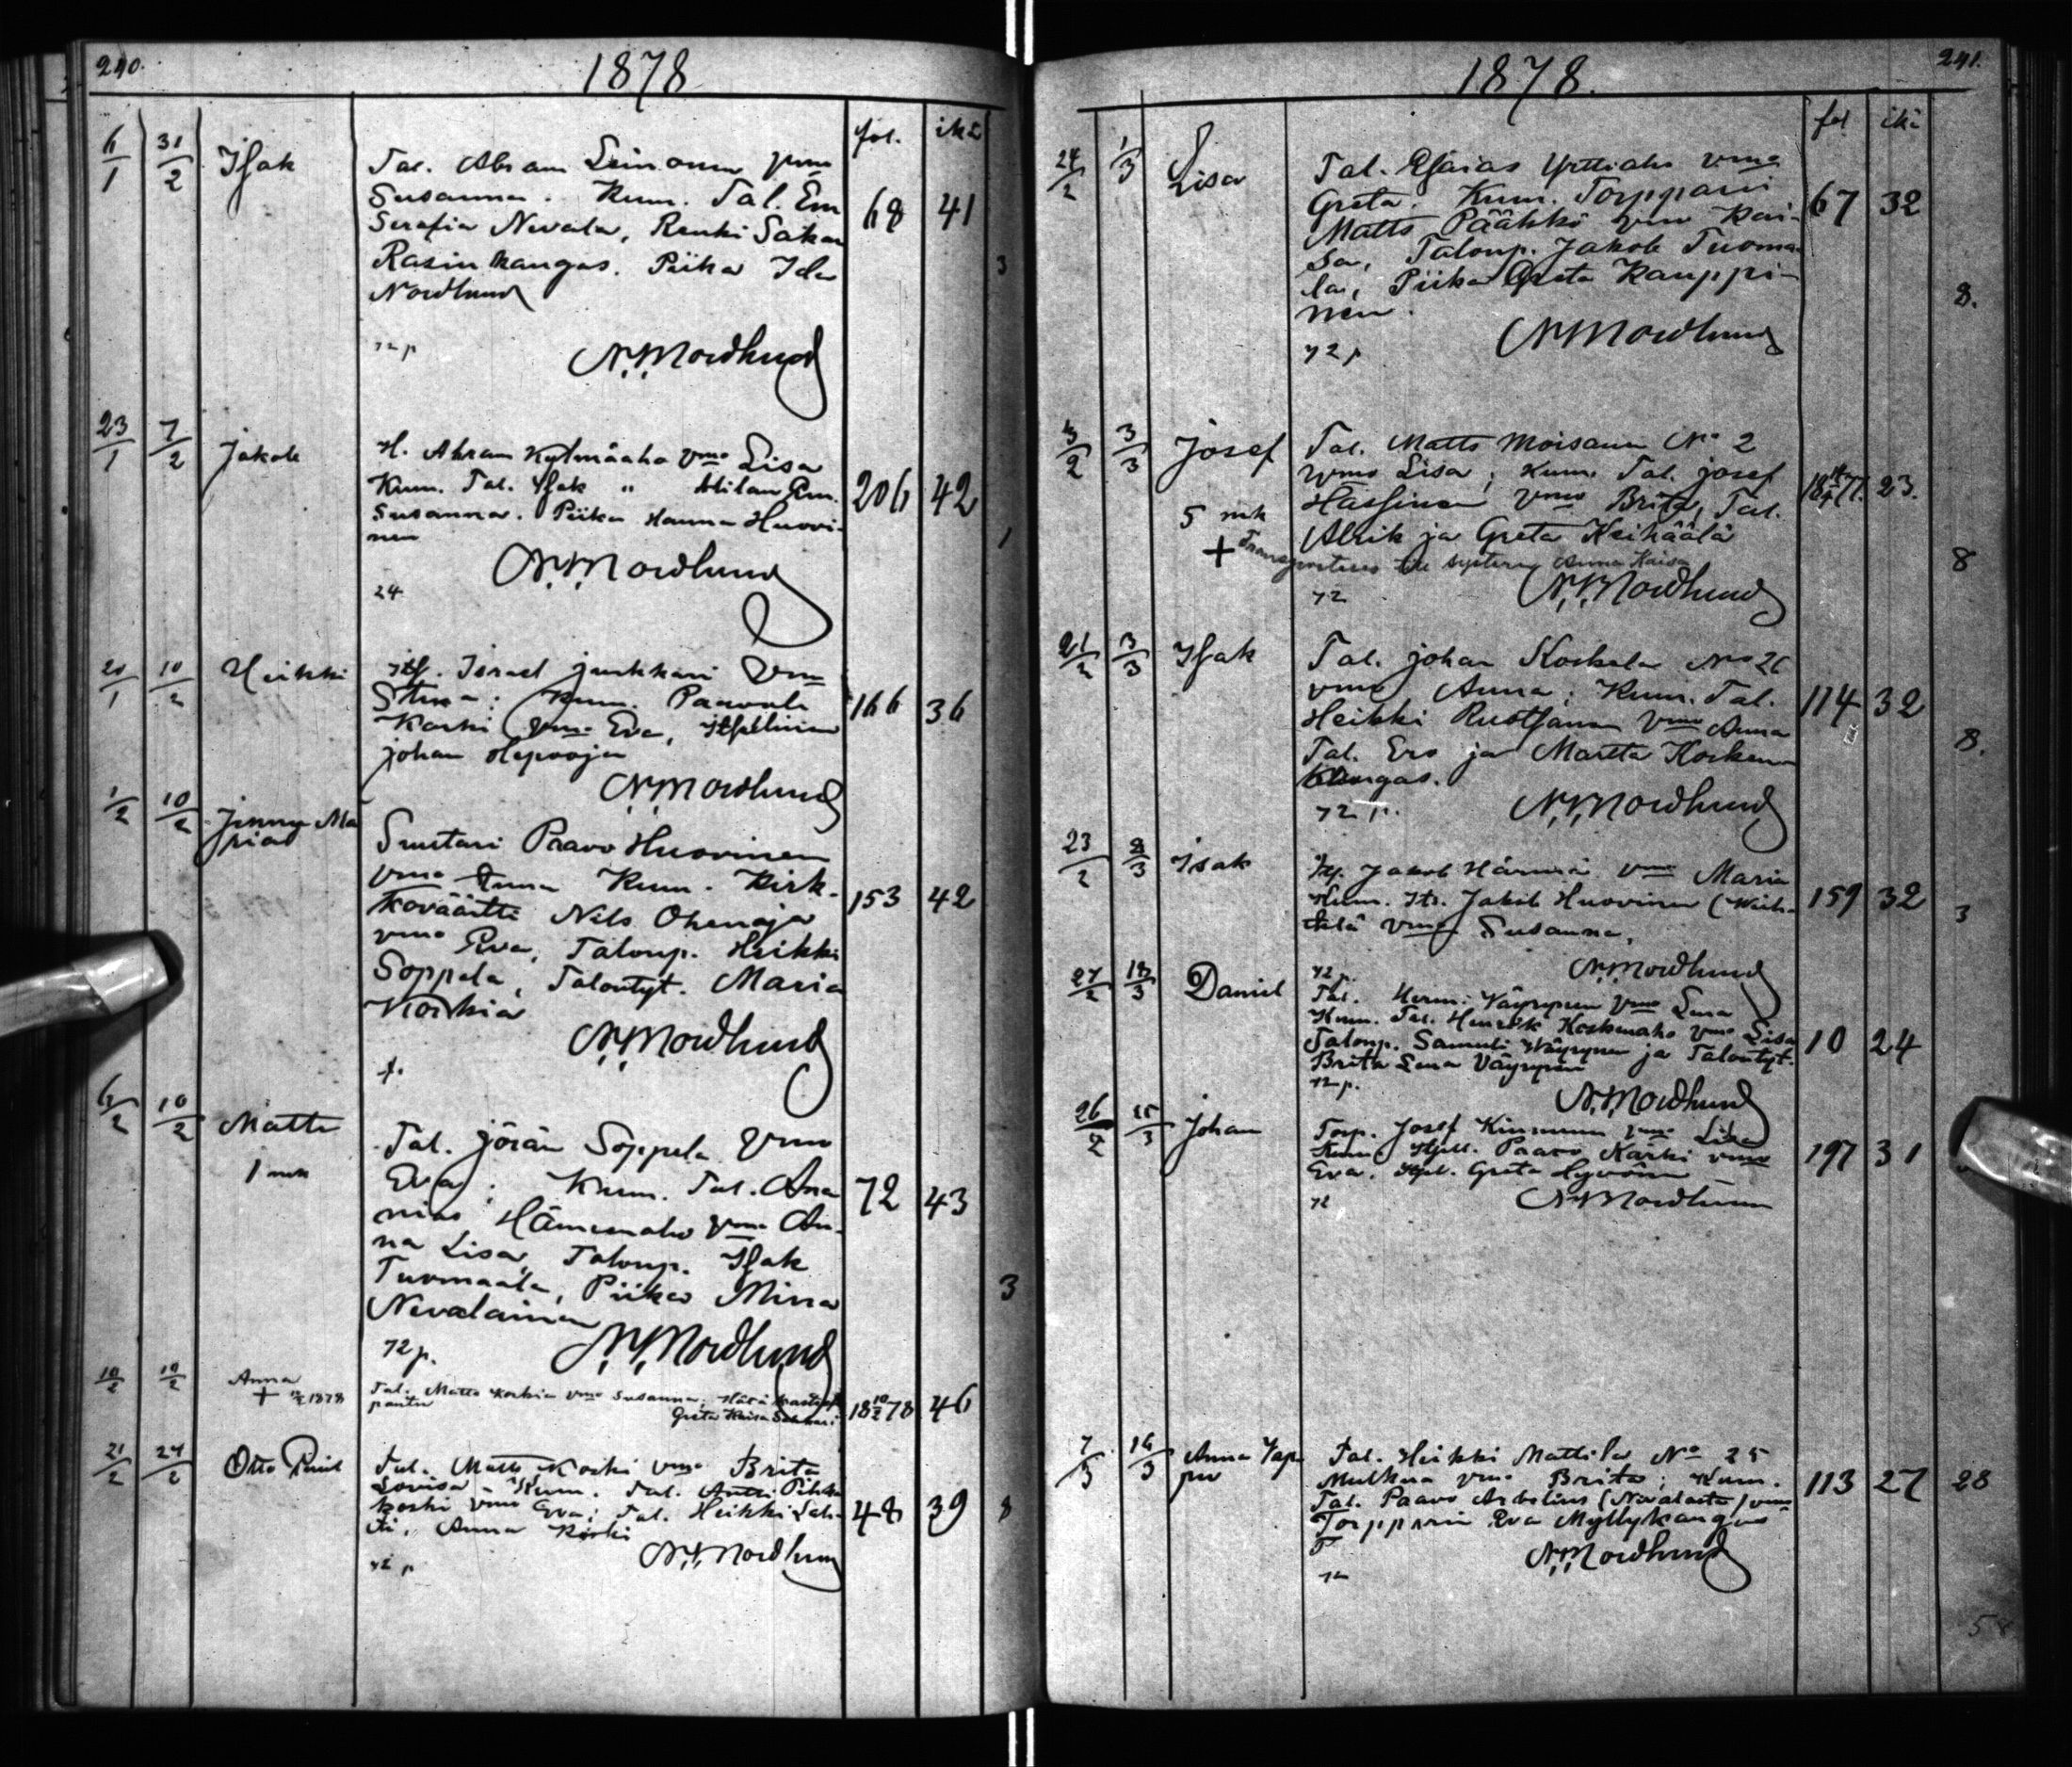 240.
1878
fol.
ikä
6/1 31/2 Isak
Tal. Abram Leinonen vmo
Susanna. Kum. Tal. Em
Serafia Nevala, Renki Sakar
Rasinkangas. Piika Ida
Nordlund
68 41
3
72 p
N.Y. Nordlund
23/1 7/2 Jakob
H. Abram Kylmäaho vmo Lisa
Kum. Tal. Isak " Em.
Susanna. Piika Hanna Huovi-
nen
206 42
1
N.Y. Nordlund
24
10/2 Heikki
Itf. Israel Junkkari vmo
Stina: Kum. Paavali
Koski vmo Eva, Itsellinen
Johan Hepooja
166 36
N.Y. Nordlund
1/2 10/2 Jenny Ma
ria
Suutari Paavo Huovinen
vmo Anna Kum. Kirk-
koväärtti Nils Ohenoja
vmo Eva, Taloup. Heikki
Soppela, Talontyt. Maria
Korkia
153 42
N.Y. Nordlund
6/2 10/2 Matti
1 mk
Tal. Jöran Soppela vmo
Eva; Kum. Tal. Ana
nias Hämeenaho vmo An-
na Lisa, Taloup. Isak
Tuomaala, Piika Mina
Nevalainen
72 43
3
72 p.
N.Y. Nordlund
10/2 10/2 Anna
+ 1878
Tal. Matts Korkia vmo Susanna; Hätä kastett
Greta Kaisa
18 10/2 78 46
21/2 24/2 Otto
Tal. Matts Koski vmo Brita
Lovisa - Kum. Tal. Antti Pihla
koski vmo Eva; Tal. Heikki Lah-
ti, Anna Koski
48 39
8
72 p
N.Y. Nordlund
241.
1878.
fol
ikä
24/2 1/3 Lisa
Tal. Esaias Yrttiaho vmo
Greta. Kum. Torppari
Matts Pääkkö vmo Kai-
sa, Taloup. Jakob Tuoma-
la, Piika Greta Kauppi-
nen.
67 32
8.
72 p
N.Y. Nordlund
3/3 Josef
5 mk
+
Tal. Matts Moisanen No 2
vmo Lisa; Kum. Tal. Josef
Hassinen vmo Brita, Tal.
Alrik ja Greta Keihäälä
Anna Kaisa
23.
8
72
N.Y. Nordlund
21/2 3/3 Isak
Tal. Johan Koskela No 26
vmo Anna; Kum. Tal.
Heikki Rustsanen vmo Anna
Tal. Ero ja Martta Kosken-
kangas.
114 32
8.
72 p.
N.Y. Nordlund
23/2 Isak
Jakob Härmä vmo Maria
Kum. Its. Jakob Huovinen
vmo Susanna.
159 32
3
72 p.
N.Y. Nordlund
27/2 Daniel
Tal. Herm. Väyrynen vmo Lena
Kum. Tal. Henrik Koskenaho vmo Lisa
Taloup. Samuli Väyrynen ja Talontyt.
Brita Lena Väyrynen
10 24
72 p.
N.Y. Nordlund
26/2 Johan
Torp. Josef Kinnunen vmo Lisa
Kum. Itsell. Paavo Karki vmo
Eva. Itsel. Greta Hyvönen
197 31
72
N.Y. Nordlund
7/3 16/3 Anna Vap
pu
Tal. Heikki Mattila No 25
Mulkua vmo Brita; Kum.
Tal. Paavo Arbelius (Nivalasta) vmo
Torpparin Eva Myllykangas
113 27
28
72
N.Y. Nordlund
58